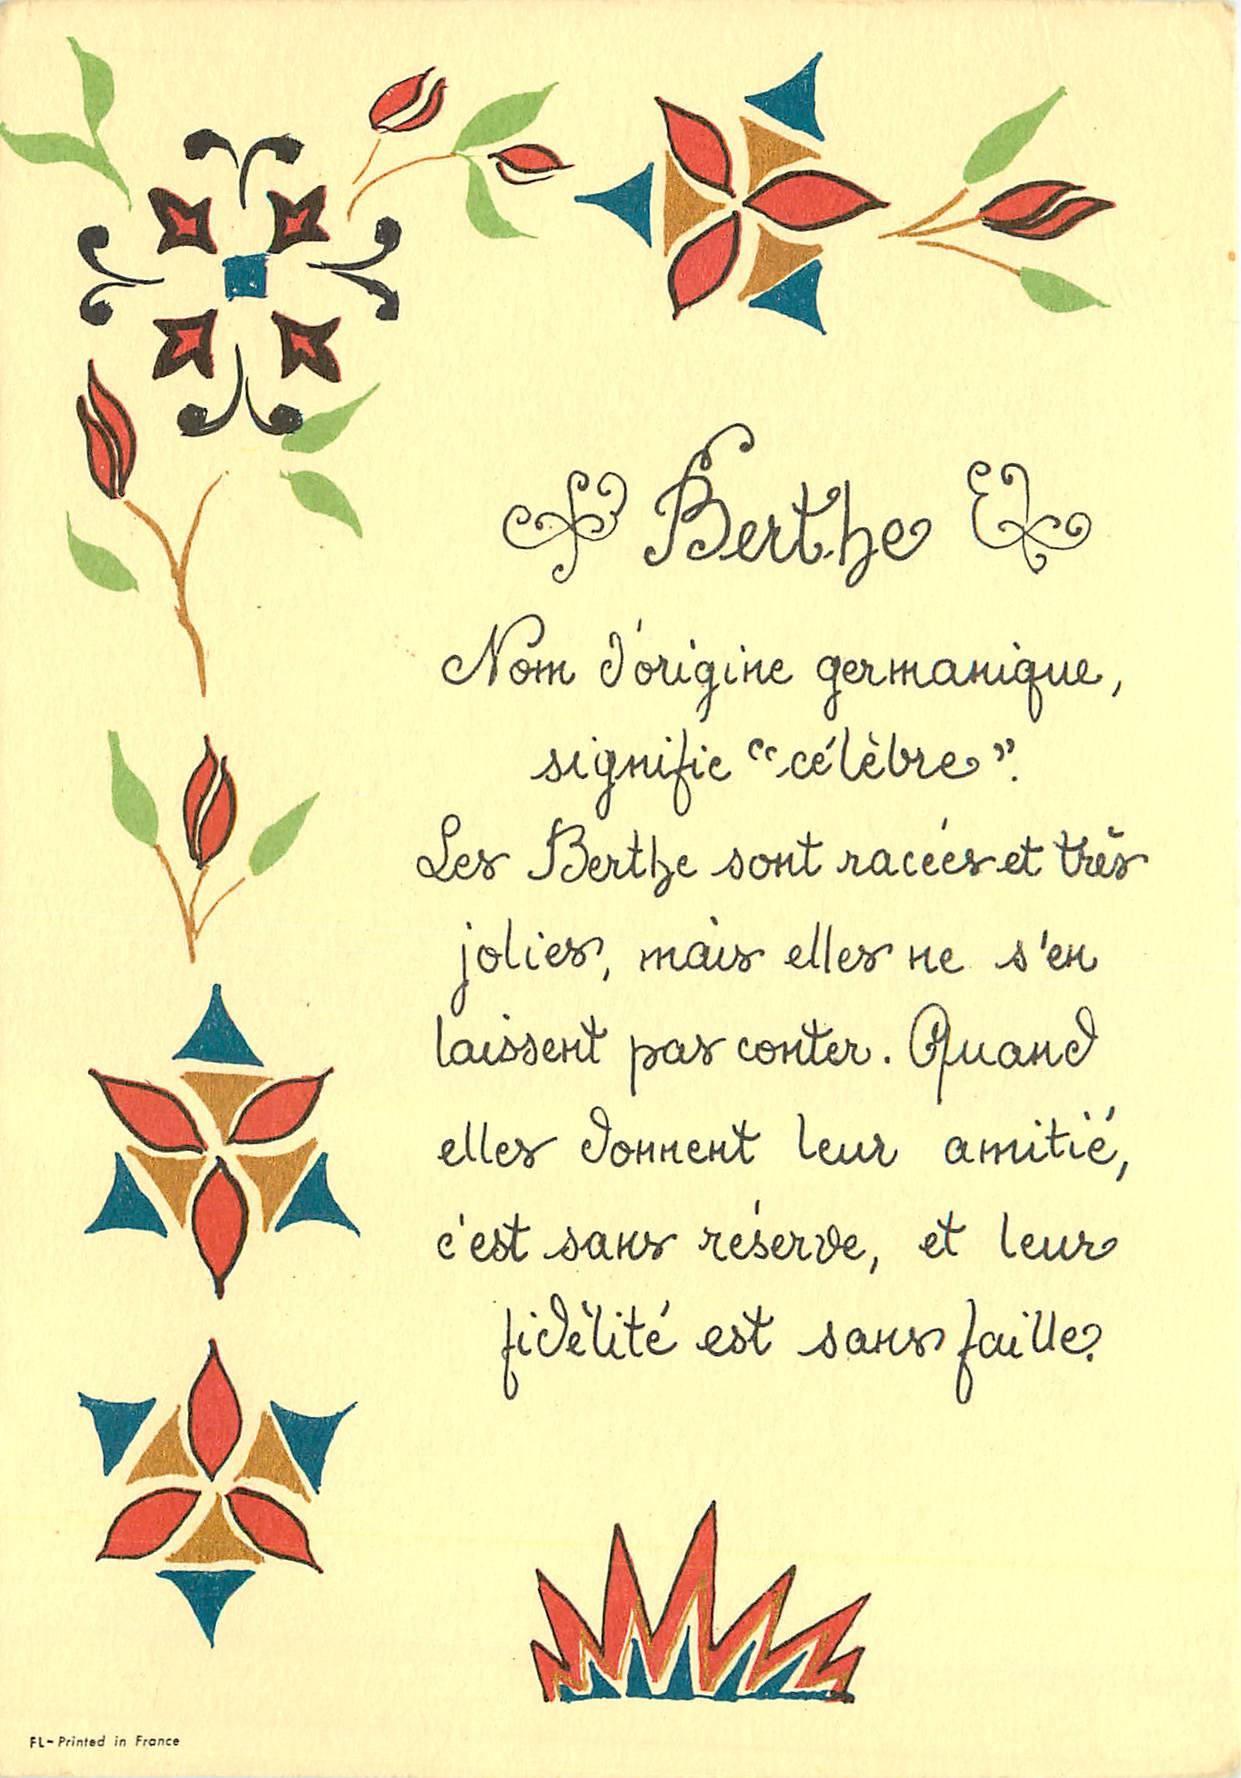 Berthe
Nom d'origine germanique,
signifie "célèbre".
Les Berthe sont racées et très
jolies, mais elles ne s'en
laissent pas conter. Quand
elles donnent leur amitié,
c'est sans réserve, et leur
fidélité est sans faille.
FL- Printed in France